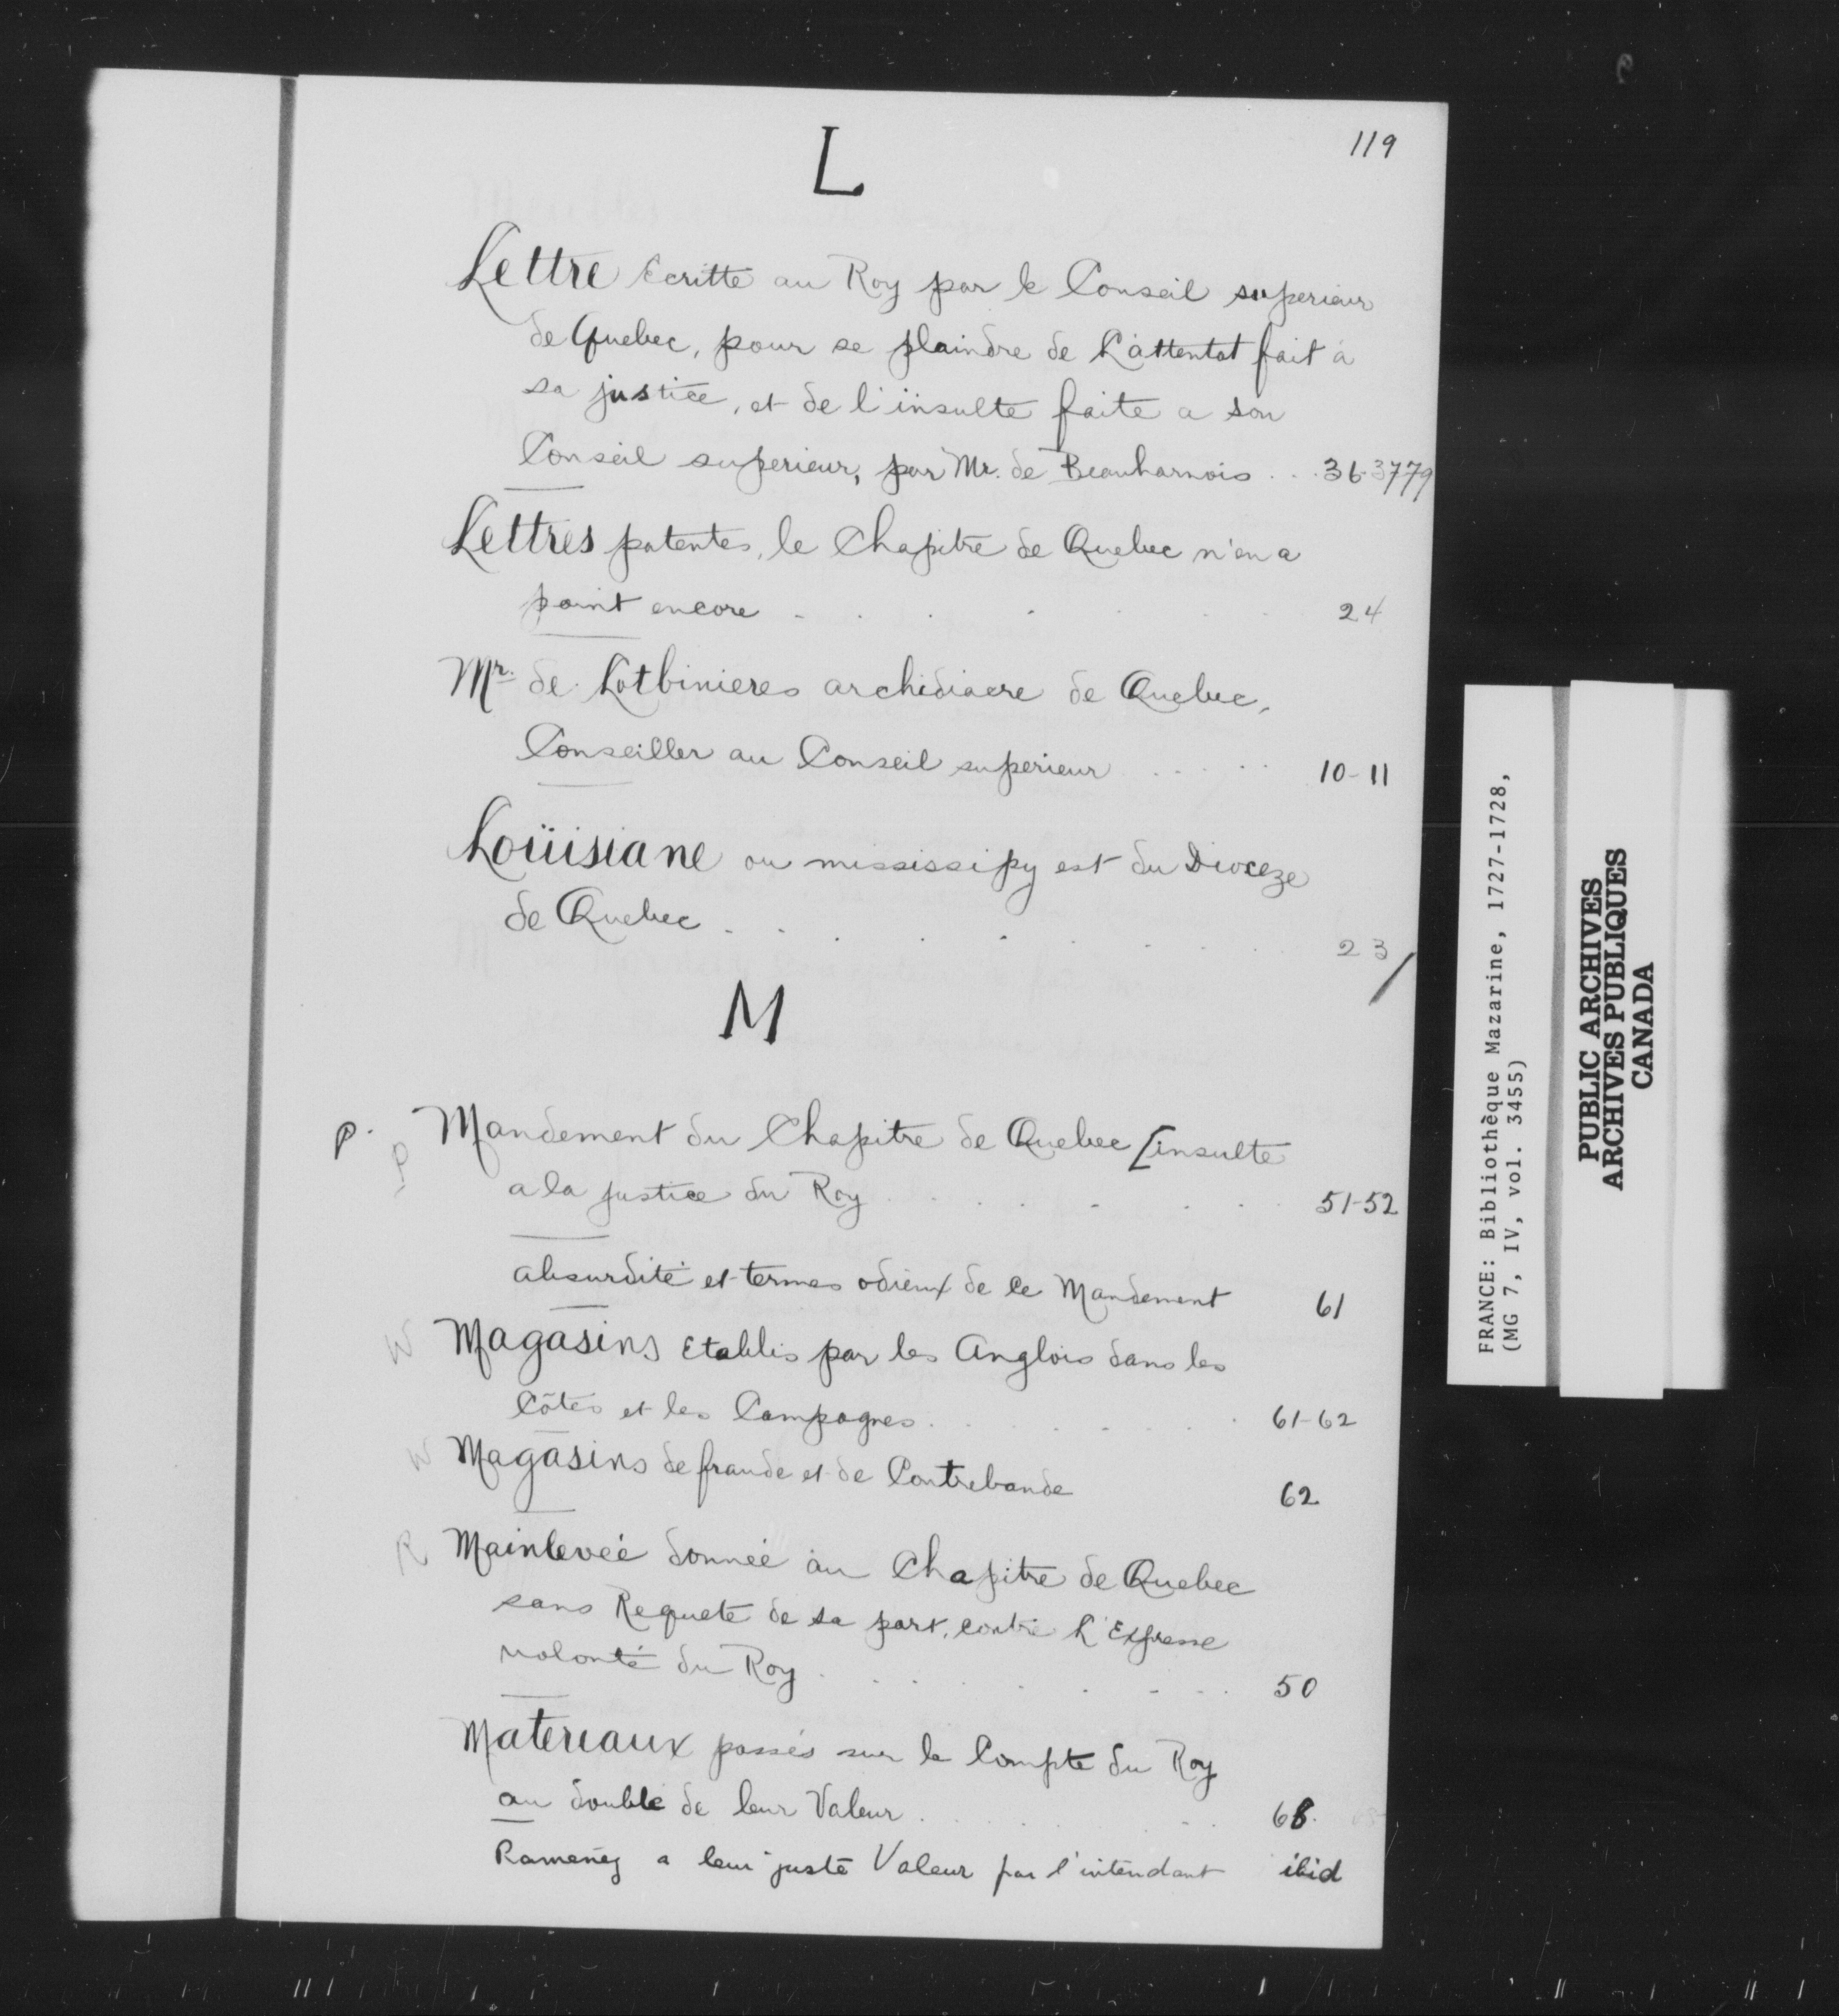 119
L
Lettre Ecritte au Roy par le Conseil superieur
de Quebec, pour se plaindre de L'attentat fait à
sa justice, et de l'insulte faite a son
Conseil superieur, par Mr. de Beauharnois . . . 36-3779
Lettres patentes, le Chapitre de Quebec n'en a
point encore . . . . . . 24
Mr. de Lotbinieres archidiacre de Quebec,
Conseiller au Conseil superieur . . . . . 10-11
Loüisiane ou mississipy est du Dioceze
de Quebec . . . . . . . . 23/
M
P. P Mandement du Chapitre de Quebec [insulte
a la justice du Roy . . . . . . 51-52
absurdité et termes odieux de ce Mandement 61
W Magasins Etablis par les Anglois dans les
Côtes et les Campagnes . . . . . . 61-62
W Magasins de fraude et de Contrebande 62
R Mainlevéé donnéé au Chapitre de Quebec
sans Requete de sa part, contre L'Expresse
volonté du Roy . . . . . . . 50
Materiaux passés sur le Compte du Roy
au double de leur Valeur . . . . . . 68.
Ramenéz a leur juste Valeur par l'intendant ibid
FRANCE: Bibliothèque Mazarine, 1727-1728,
(MG 7, IV, vol. 3455)
PUBLIC ARCHIVES
ARCHIVES PUBLIQUES
CANADA